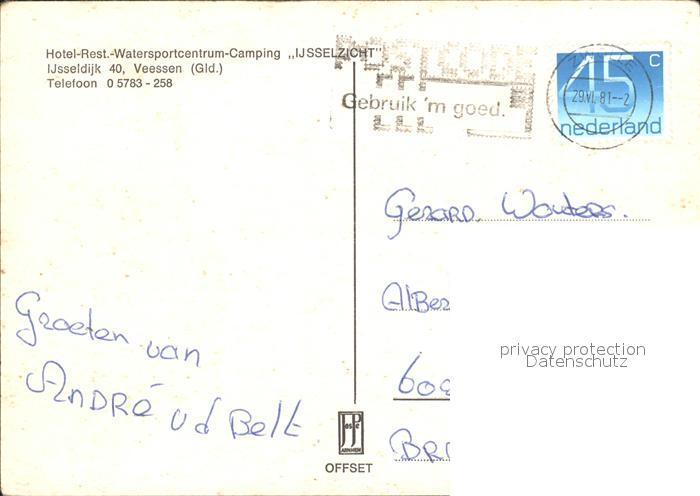 Hotel-Rest.-Watersportcentrum-Camping „IJSSELZICHT"
IJsseldijk 40, Veessen (Gld.)
Telefoon 0 5783 - 258
POSTCODE
Gebruik 'm goed.
29.VI.81--2
45 c
nederland
Gerard Wouters.
Alber
privacy protection
Datenschutz
Groeten van
André vd Belt
JosPe
ARNHEM
OFFSET